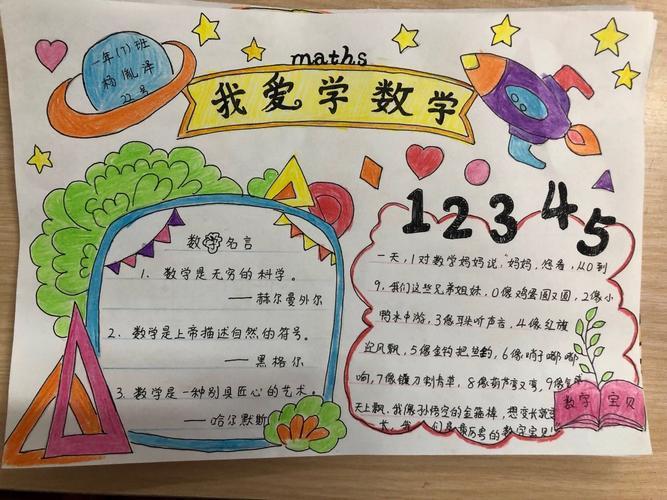 一年(7)班
杨胤泽
22号
maths
我爱学数学
数学名言
1. 数学是无穷的科学。
——赫尔曼外尔
2. 数学是上帝描述自然的符号。
——黑格尔
3. 数学是一种别具匠心的艺术。
——哈尔默斯
12345
一天,1对数学妈妈说:"妈妈,您看,从0到
9,我们这些兄弟姐妹,0像鸡蛋圆又圆,2像小
鸭水中游,3像耳朵听声音,4像红旗
迎风飘,5像金钩把鱼钓,6像哨子嘟嘟
响,7像镰刀割青草,8像葫芦弯又弯,9像
天上飘,我像孙悟空的金箍棒,想变长就变
长,我们是最厉害的数字宝贝!
数字宝贝